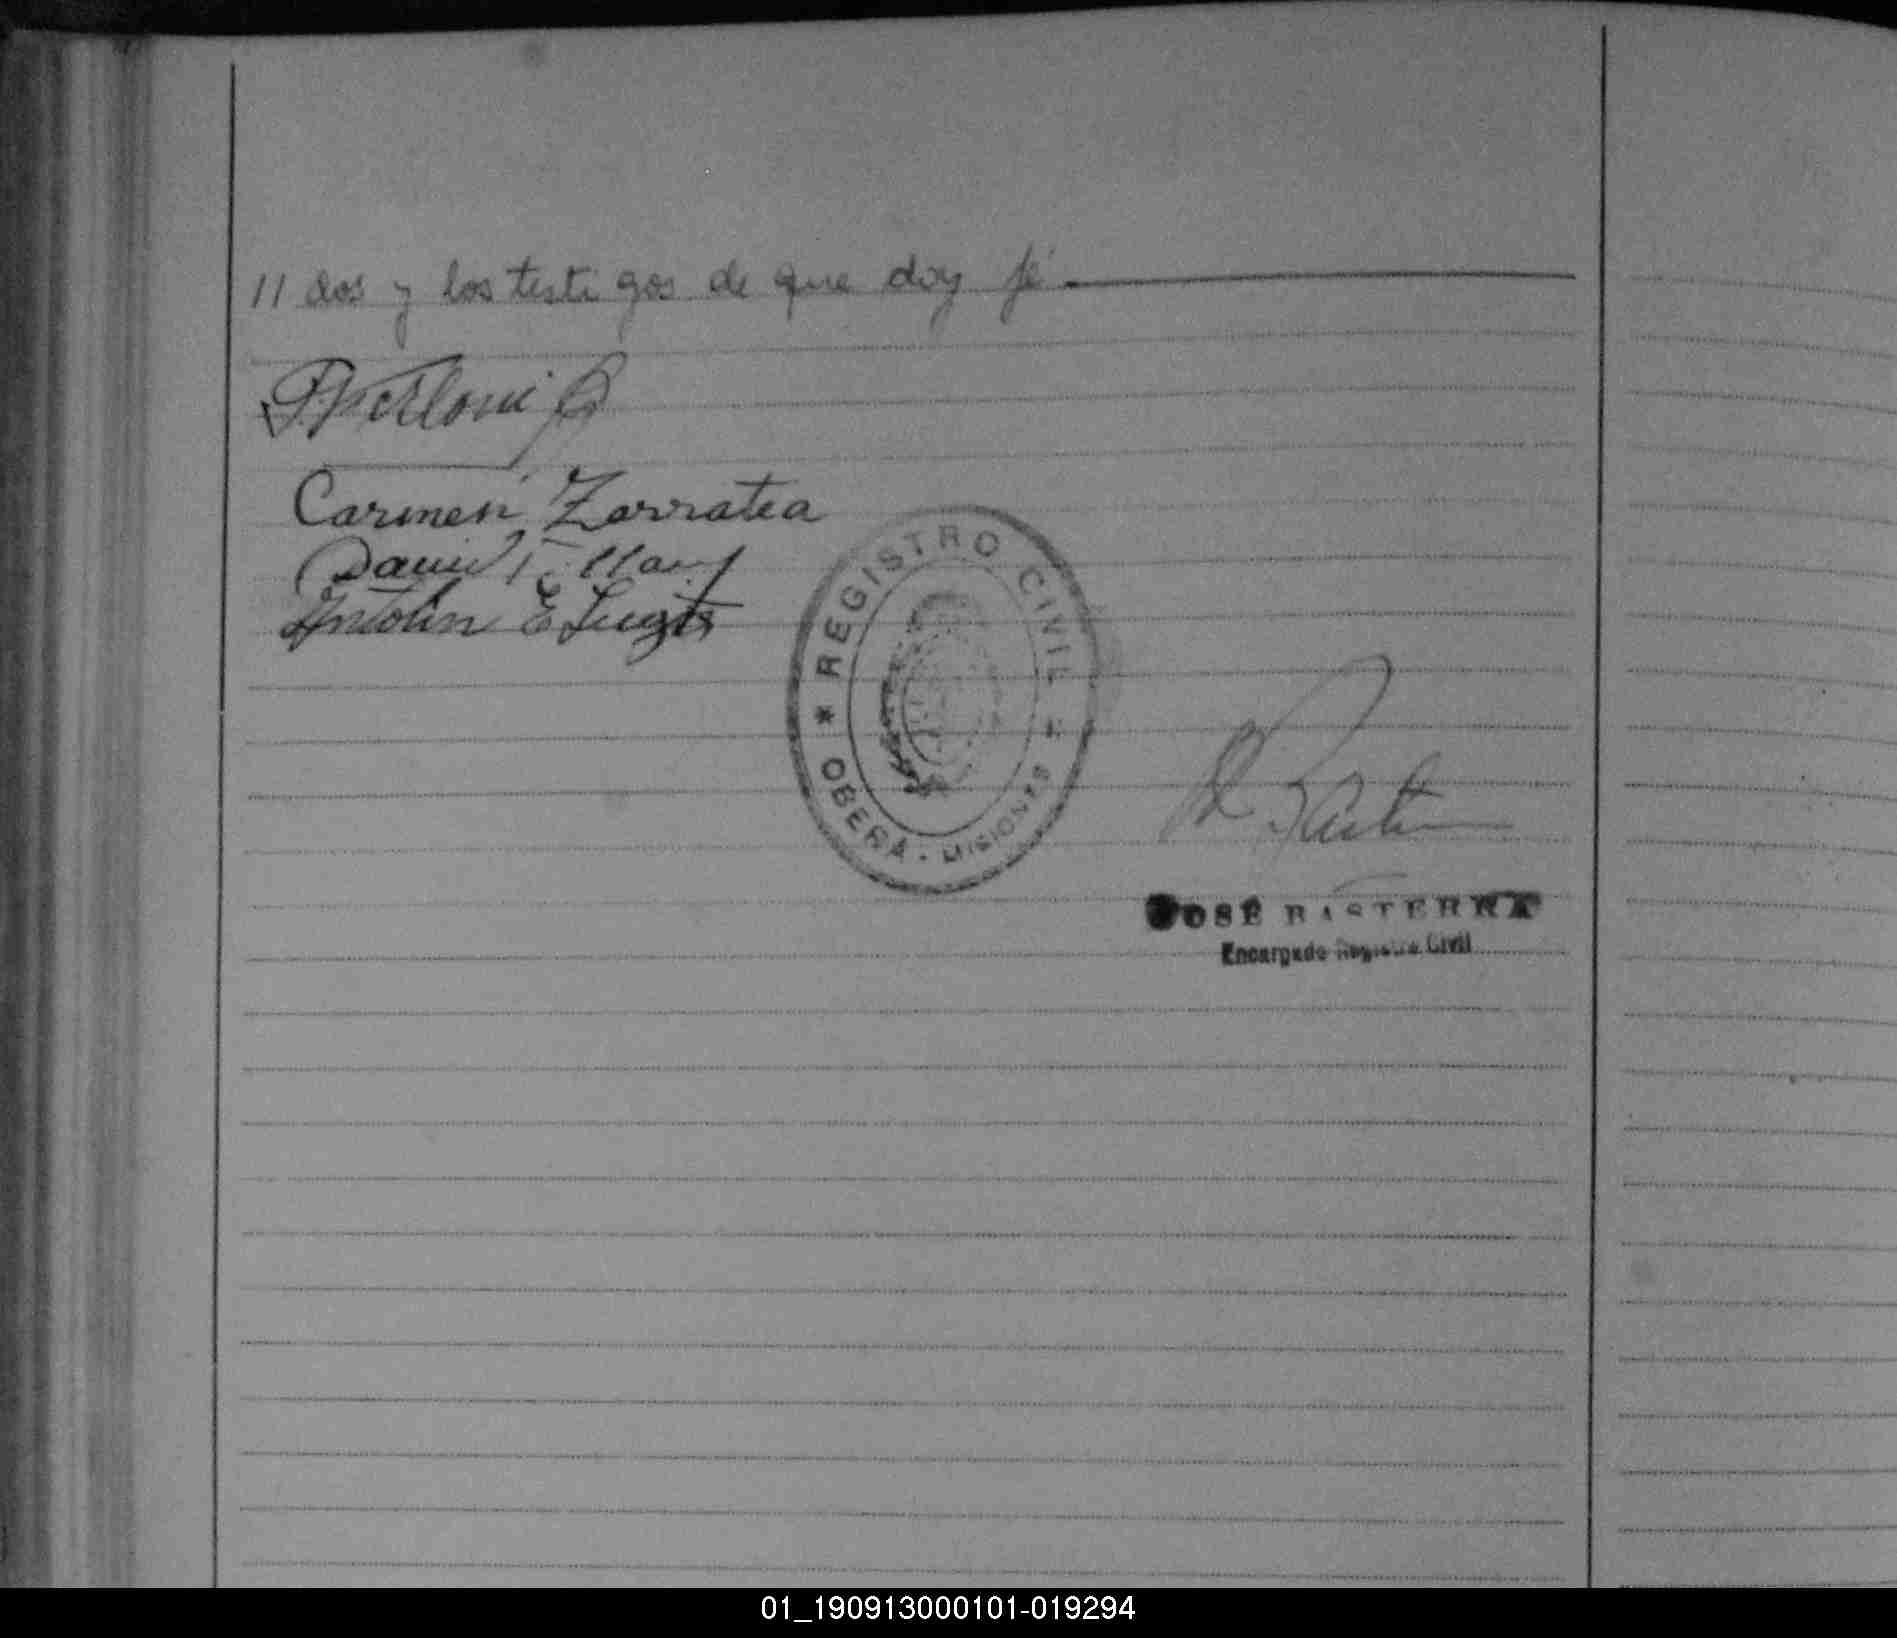 // dos y los testigos de que doy fé
Carmen Zarratea
David
Antolin E Lugo
* REGISTRO CIVIL *
OBERA - MISIONES
JOSÉ BASTERRA
Encargado Registro Civil
01_190913000101-019294